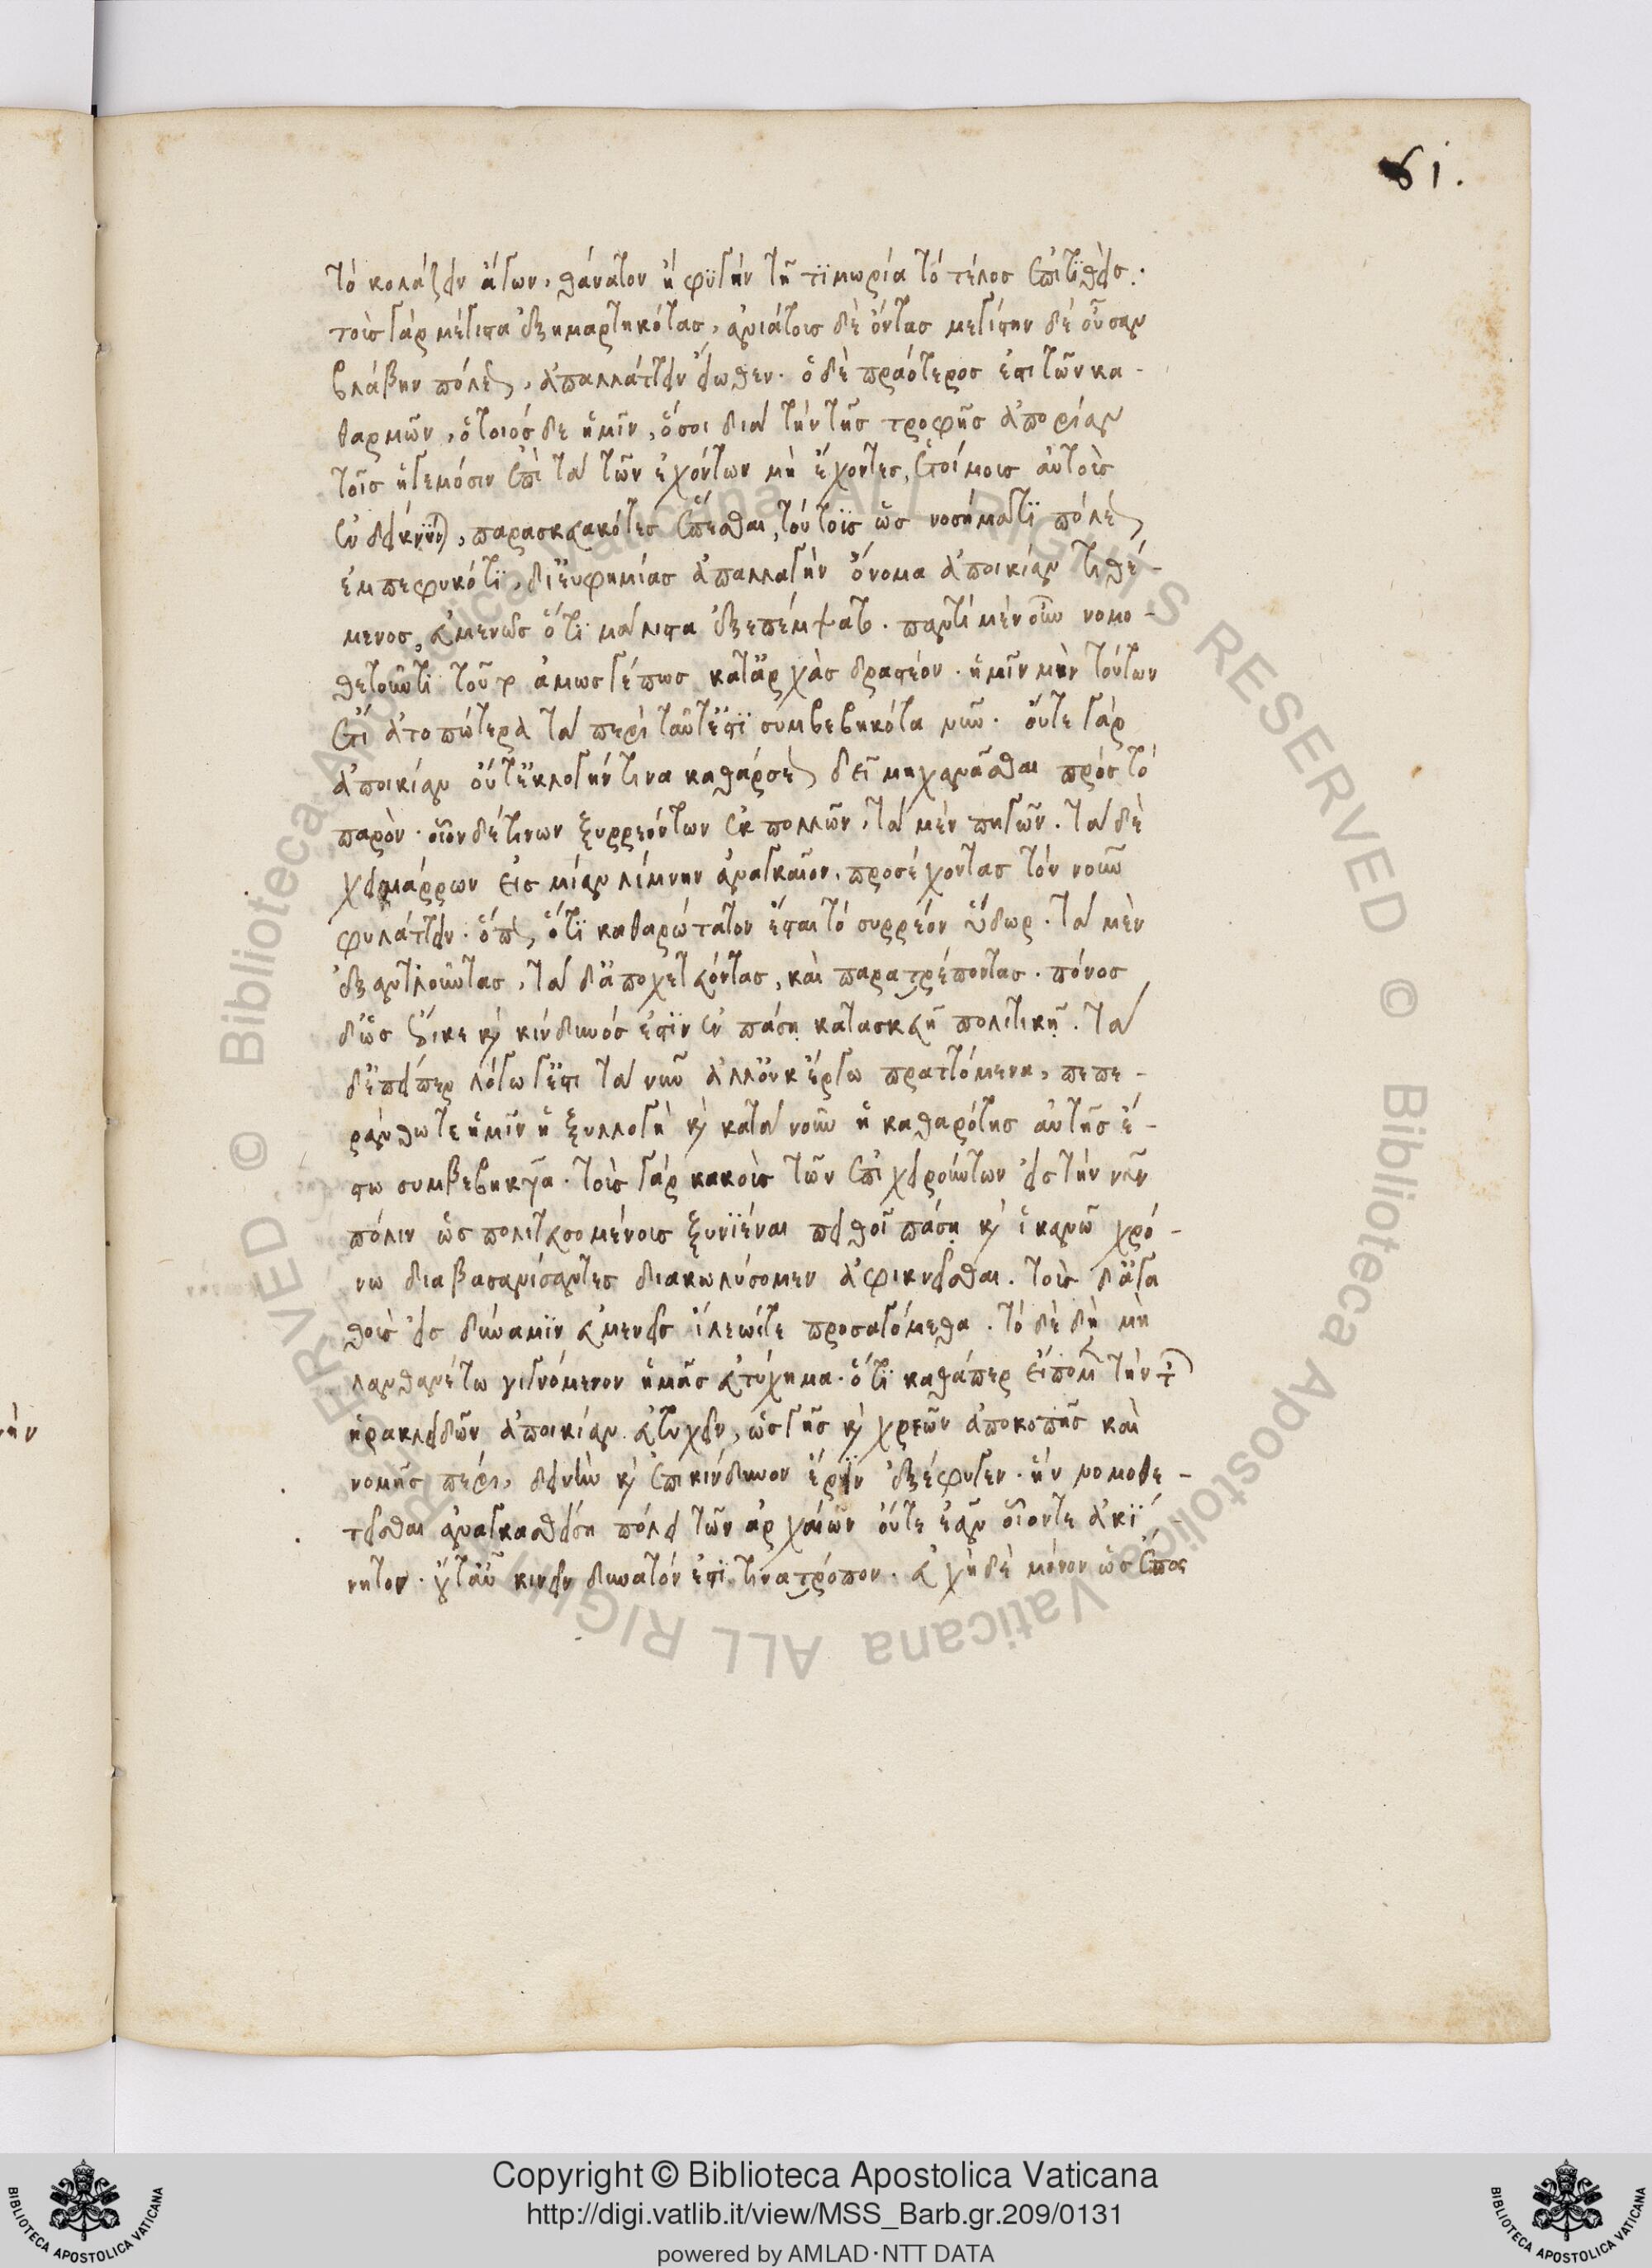 61.
τὸ κολάζειν ἄγων, θάνατον ἢ φυγὴν τῇ τϊμωρία τὸ τέλος ἐπιτϊθεὶς.
τοὺς γάρ μέγιστα ἐξημαρτηκότας, ἀνιάτοις δὲ ὄντας μεγίστην δὲ οὖσαν
βλάβην πόλεως, ἀπαλλάττειν εἴωθεν. ὁ δὲ πραότερος ἐστι τῶν κα-
θαρμῶν, ὁ τοιόσδε ἡμῖν, ὅσοι διὰ τὴν τῆς τροφῆς ἀπορίαν
τοῖς ἡγεμόσιν ἐπὶ τὰ τῶν ἐχόντων μὴ ἔχοντες, ἑτοίμοις αὐτοὺς
ἐνδείκνυνται, παρασκευακότες ἕπεσθαι, τούτοϊς ὡς νοσήματϊ πόλεως
ἐμπεφυκότϊ, δϊ εὐφημίας ἀπαλλαγὴν ὄνομα ἀποικίαν τιθέ-
μενος, εὐμενῶς ὅτϊ μάλιστα ἐξεπέμψατο. παντὶ μὲν οὖν νομο-
θετοῦντι τοῦτο ἀμωσγέπως κατ' ἀρχὰς δραστέον. ἡμῖν μὴν τούτων
ἔτι ἀτοπώτερα τὰ περὶ ταῦτ' ἐστϊ συμβεβηκότα νῦν. οὔτε γάρ
ἀποικίαν οὔτ' ἐκλογήν τινα καθάρσεως δεῖ μηχανᾶσθαι πρὸς τὸ
παρὸν. οἷον δέ τινων ξυρρεόντων ἐκ πολλῶν, τὰ μὲν πηγῶν. τὰ δὲ
χειμάρρων εἰς μίαν λίμνην ἀναγκαῖον, προσέχοντας τὸν νοῦν
φυλάττειν. ὅπως, ὅτϊ καθαρώτατον ἔσται τὸ συρρέον ὕδωρ. τὰ μὲν
ἐξαντλοῦντας, τὰ δ' ἀποχετεύοντας, καὶ παρατρέποντας. πόνος
δ' ὡς ἔοικε καὶ κίνδυνός ἐστϊν ἐν πάσῃ κατασκευῇ πολιτικῇ. τὰ
δ' ἐπείπερ λόγω γ' ἐστι τὰ νῦν ἀλλ' οὐκ ἔργω πραττόμενα, πεπε-
ράνθω τε ἡμῖν ἡ ξυλλογὴ καὶ κατὰ νοῦν ἡ καθαρότης αὐτῆς ἔ-
στω συμβεβηκυῖα. τοὺς γὰρ κακοὺς τῶν ἐπιχειρούντων εἰς τὴν νῦν
πόλιν ὡς πολιτευσομένοις ξυνϊέναι πειθοῖ πάσῃ καὶ ἱκανῶ χρό-
νω διαβασανίσαντες διακωλύσομεν ἀφικνεῖσθαι. τοὺς δ' ἀγα
θοὺς εἰς δύναμϊν εὐμενεῖς ἵλεώς τε προσαγόμεθα. τὸ δὲ δὴ μὴ
λανθανέτω γιγνόμενον ἡμᾶς εὐτύχημα. ὅτϊ καθάπερ εἴπομεν τὴν τῶν
ἡρακλειδῶν ἀποικίαν εὐτυχεῖν, ὡς γῆς καὶ χρεῶν ἀποκοπῆς καὶ
νομῆς πέρι, δεινὴν καὶ ἐπικίνδυνον ἔρϊν ἐξέφυγεν. ἣν νομοθε-
τεῖσθαι ἀναγκασθείσῃ πόλει τῶν ἀρχαίων οὔτε ἐᾶν οἷόντε ἀκί-
νητον. οὔτ' αὖ κινεῖν δυνατόν ἐστϊ τινα τρόπον. εὐχὴ δὲ μόνον ὡς ἔπος
Copyright © Biblioteca Apostolica Vaticana
http://digi.vatlib.it/view/MSS_Barb.gr.209/0131
powered by AMLAD·NTT DATA